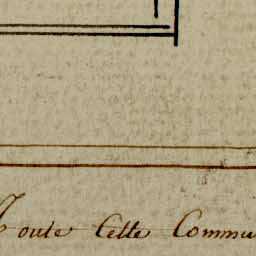 Toute Cette Commu